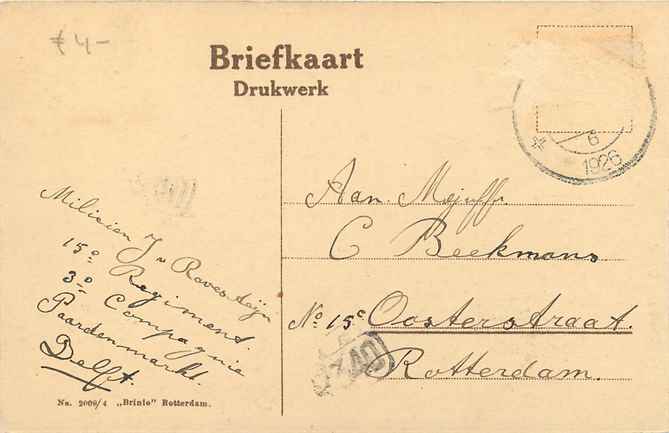 € 4-
Briefkaart
Drukwerk
6
1926
Milicien J v Ravesteijn
15e Regiment.
3e Compagnie
Paardenmarkt.
Delft.
Aan. Mejuffr.
C Beekmans
No. 15c Oosterstraat.
Rotterdam.
No. 2000/4 „Brinio” Rotterdam.